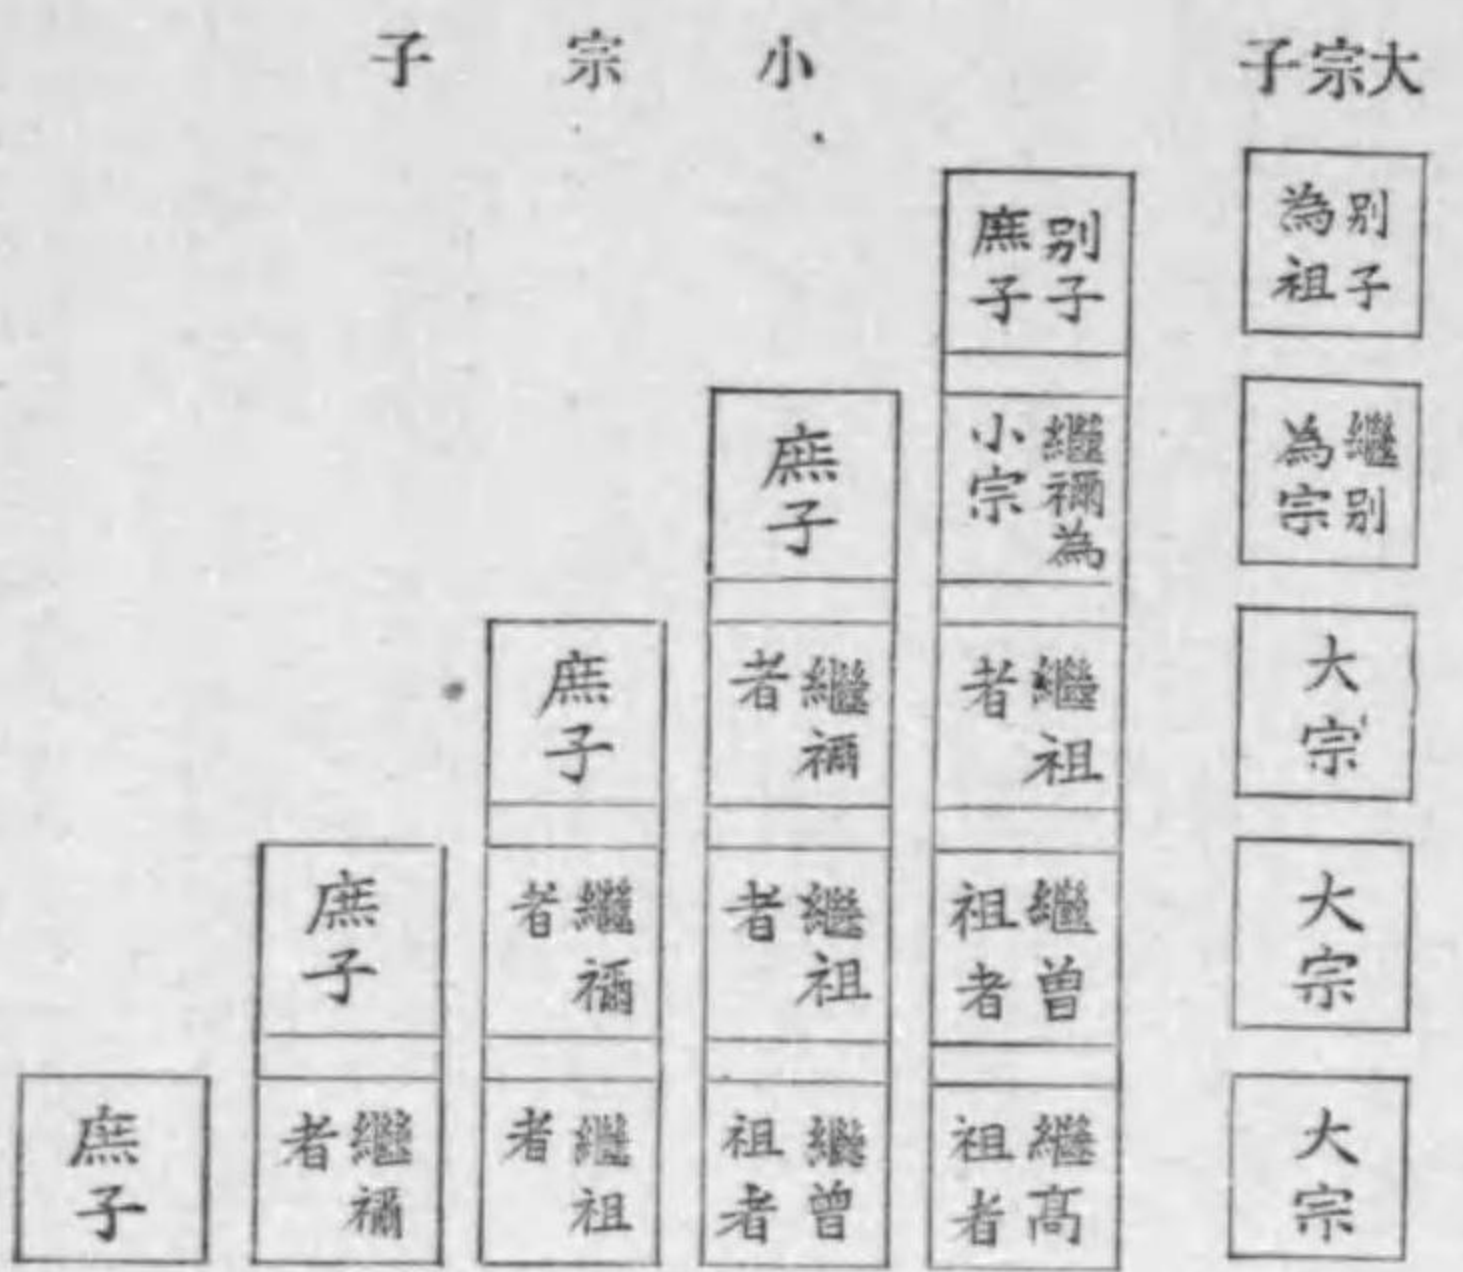 大宗子
小宗子
别子
為祖
繼别
為宗
大宗
大宗
大宗
别子
庶子
繼禰為
小宗
繼祖
者
繼曾
祖者
繼高
祖者
庶子
繼禰
者
繼祖
者
繼曾
祖者
庶子
繼禰
者
繼祖
者
庶子
繼禰
者
庶子